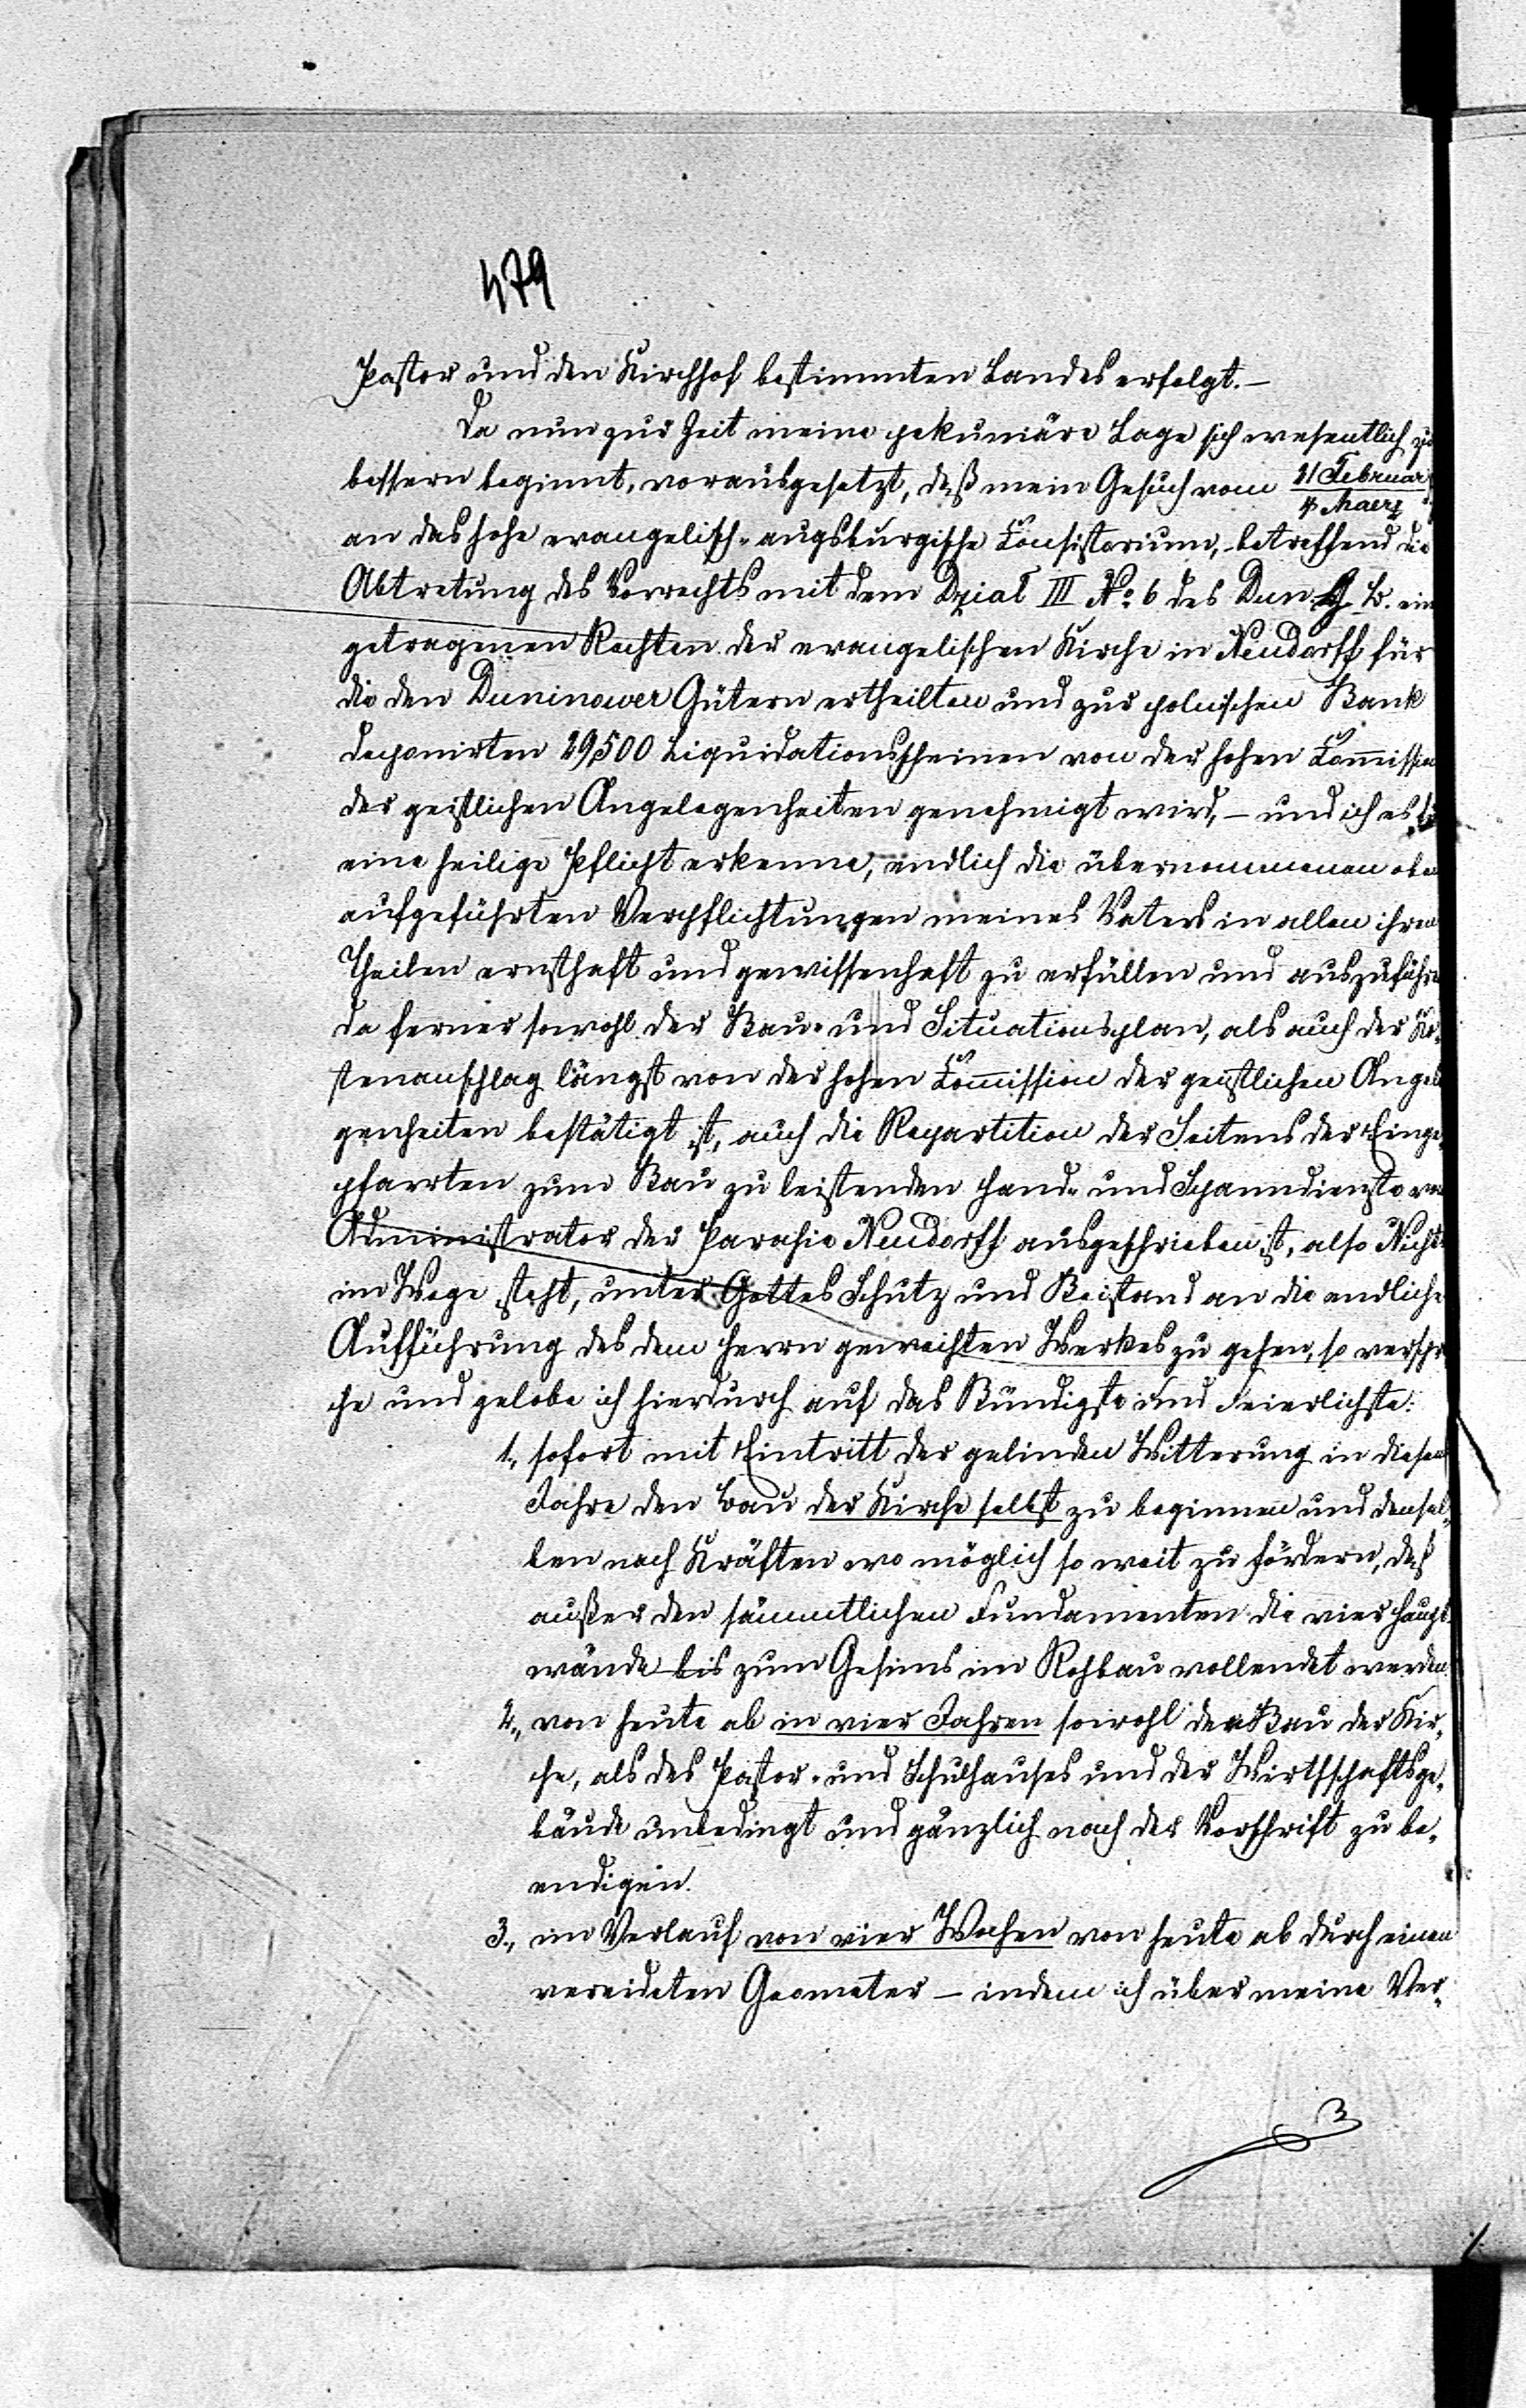 479
Pastor und den Kirchhof bestimmten Landes erfolgt. —
Da nun zur Zeit meine pekuniäre Lage sich wesentlich zu
bessern beginnt, vorausgesetzt, daß mein Gesuch vom 21 Februar
4 Maerz
an das hohe evangelisch-augsburgische Consistorium, betreffend die
Abtretung des Vorrechts mit dem Dział III No 6 des Dun. H. B. ein
getragenen Rechten der evangelischen Kirche in Neudorff für
die den Duninower Gütern ertheilten und zur polnischen Bank
deponirten 29,500 Liquidationsscheinen von der hohen Commission
der geistlichen Angelegenheiten genehmigt wird, — und ich es für
eine heilige Pflicht erkenne, endlich die übernommenen oben
aufgeführten Verpflichtungen meines Vaters in allen ihren
Theilen ernsthaft und gewissenhaft zu erfüllen und auszuführen
da ferner sowohl der Bau- und Situationsplan, als auch der Ko-
stenanschlag längst von der hohen Commission der geistlichen Angele
genheiten bestätigt ist, auch die Repartition der Seitens der Einge-
pfarrten zum Bau zu leistenden Hand- und Spanndienste vom
Administrator der Parafie Neudorff ausgeschrieben ist, also Nichts
im Wege steht, unter Gottes Schutz und Beistand an die endliche
Aufführung des dem Herrn geweihten Werkes zu gehen, so verspre
che und gelobe ich hierdurch auf das Bündigste und Feierlichste:
1., sofort mit Eintritt der gelinden Witterung in diesem
Jahre den Bau der Kirche selbst zu beginnen und densel-
ben nach Kräften wo möglich so weit zu fördern, daß
außer den sämmtlichen Fundamenten die vier Haupt-
wände bis zum Gesims im Rohbau vollendet werden.
2., von heute ab in vier Jahren sowohl den Bau der Kir-
che, als des Pastor- und Schulhauses und der Wirthschaftsge-
bäude unbedingt und gänzlich nach der Vorschrift zu be-
endigen.
3., im Verlauf von vier Wochen von heute ab durch einen
vereideten Geometer — indem ich über meine Ver-